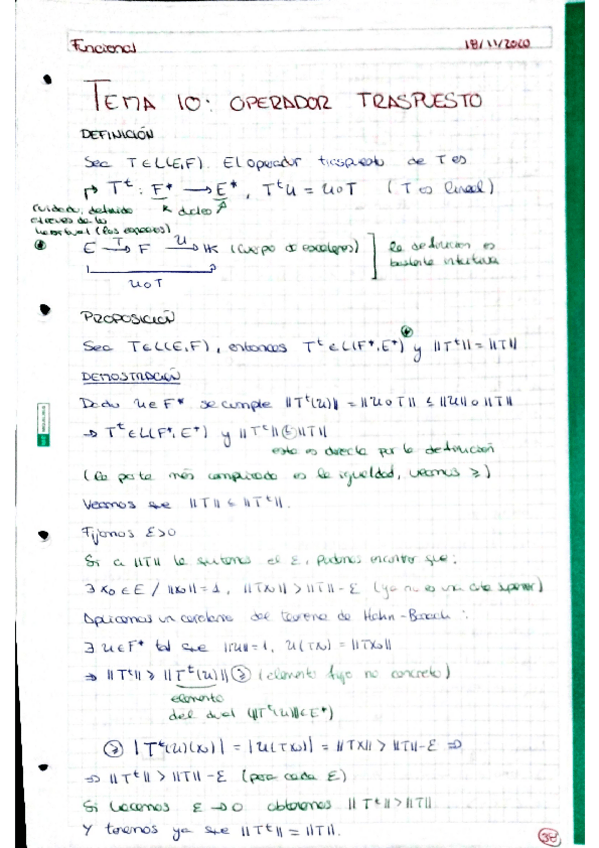 Funcional 18/11/2020
TEMA 10: OPERADOR TRASPUESTO
DEFINICIÓN
Sea T∈L(E,F). El operador traspuesto de T es
↱ Tᵗ: F* → E*, Tᵗu = u∘T (T es lineal)
cuidado, definido
duales
a través de los
(los espacios)
⊛ E —T→ F —u→ 𝕂 (cuerpo de escalares) ] la definición es
bastante intuitiva
u∘T
PROPOSICIÓN
Sea T∈L(E,F), entonces Tᵗ∈L(F*,E*) y ||Tᵗ|| = ||T||
DEMOSTRACIÓN
Dado u∈F* se cumple ||Tᵗ(u)|| = ||u∘T|| ≤ ||u||∘||T||
⇒ Tᵗ∈L(F*,E*) y ||Tᵗ|| ≤ ||T||
esto es directo por la definición
(la parte más complicada es la igualdad, veamos ≥)
Veamos que ||T|| ≤ ||Tᵗ||.
Fijamos ε>0
Si a ||T|| le quitamos el ε, podemos encontrar que:
∃ x₀∈E / ||x₀||=1, ||Tx₀|| > ||T||-ε (ya no es una cota superior)
Aplicamos un corolario del teorema de Hahn-Banach:
∃ u∈F* tal que ||u||=1, u(Tx₀) = ||Tx₀||
⇒ ||Tᵗ|| ≥ ||Tᵗ(u)|| ≥ (elemento fijo no concreto)
elemento
del dual (||Tᵗ(u)||∈E*)
≥ |Tᵗ(u)(x₀)| = |u(Tx₀)| = ||Tx₀|| > ||T||-ε ⇒
⇒ ||Tᵗ|| > ||T||-ε (para cada ε)
Si hacemos ε→0 obtenemos ||Tᵗ|| > ||T||
Y tenemos ya que ||Tᵗ|| = ||T||.
38